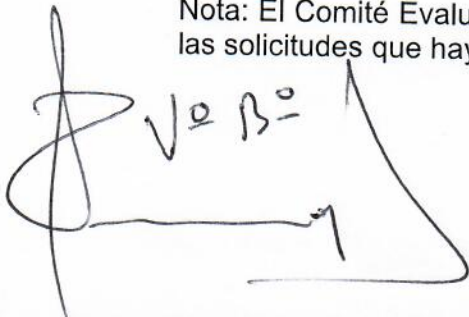 Nota: El Comité Evalu
las solicitudes que hay
Vº Bº